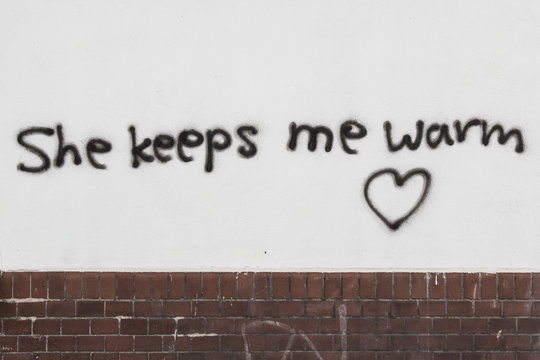 She keeps me warm